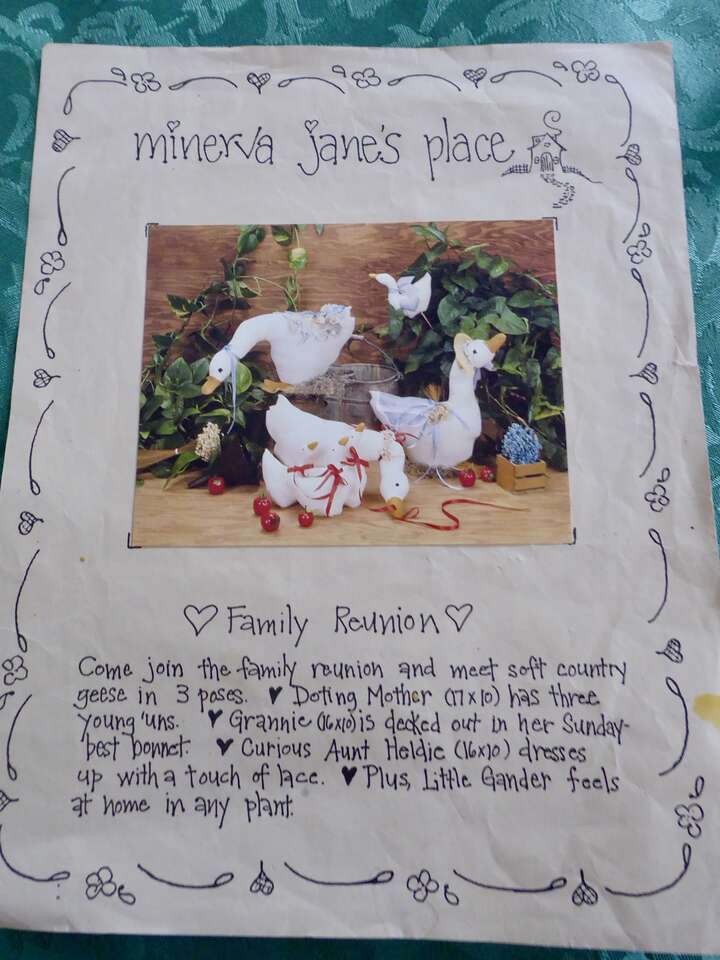 minerva jane's place
♡ Family Reunion ♡
Come join the family reunion and meet soft country
geese in 3 poses. ♥ Doting Mother (17x10) has three
young 'uns. ♥ Grannie (16x10) is decked out in her Sunday-
best bonnet. ♥ Curious Aunt Heldie (16x10) dresses
up with a touch of lace. ♥ Plus, Little Gander feels
at home in any plant.